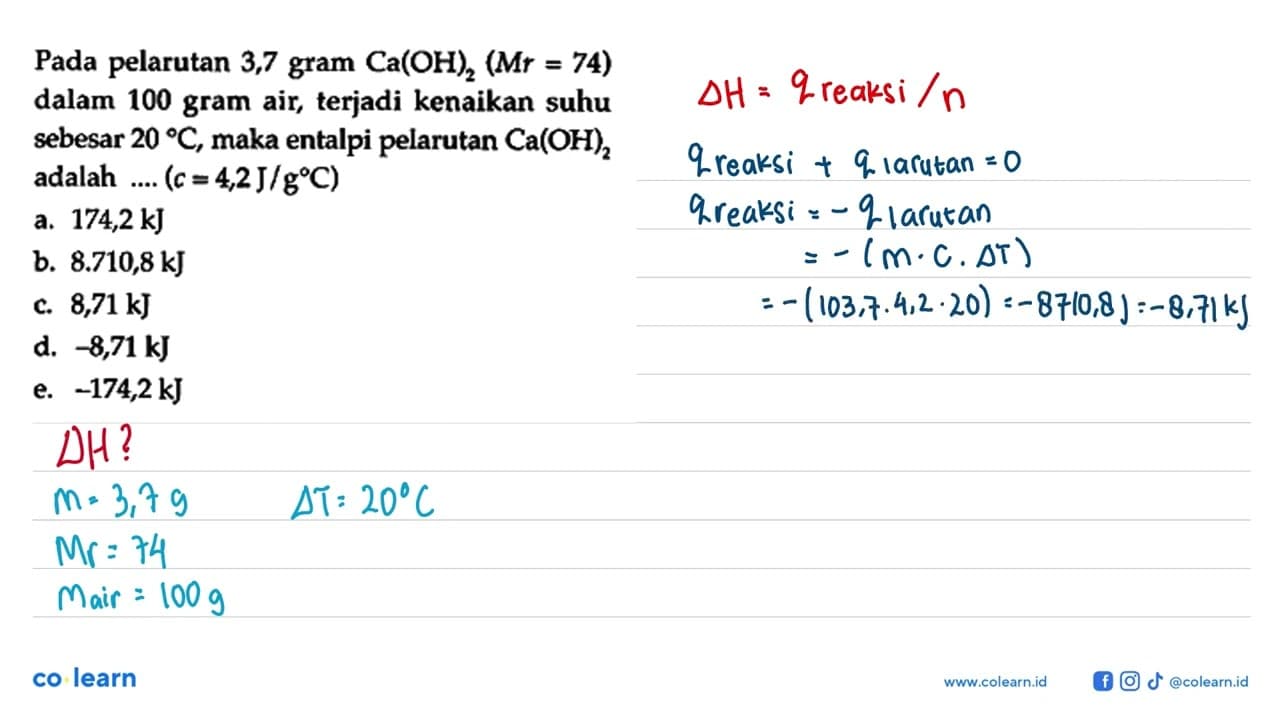 Pada pelarutan 3,7 gram Ca(OH)₂ (Mr = 74)
dalam 100 gram air, terjadi kenaikan suhu
sebesar 20 °C, maka entalpi pelarutan Ca(OH)₂
adalah .... (c = 4,2 J/g°C)
a. 174,2 kJ
b. 8.710,8 kJ
c. 8,71 kJ
d. –8,71 kJ
e. –174,2 kJ
ΔH?
m = 3,7 g ΔT = 20°C
Mr = 74
Mair = 100 g
ΔH = q reaksi / n
q reaksi + q larutan = 0
q reaksi = - q larutan
= - (m . c . ΔT)
= - (103,7 . 4,2 . 20) = -8710,8 J = -8,71 kJ
co learn
www.colearn.id @colearn.id